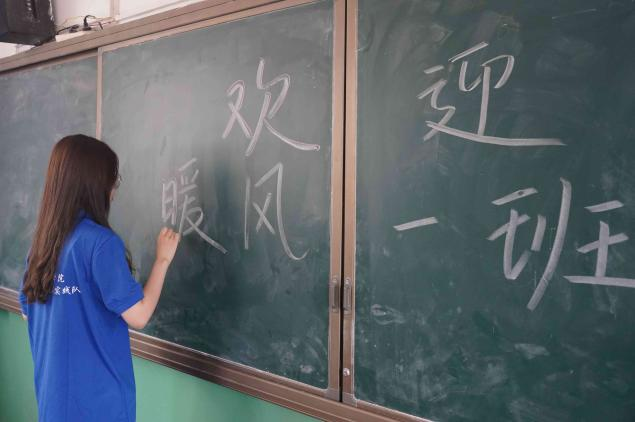 欢迎
暖风一班
院
实践队